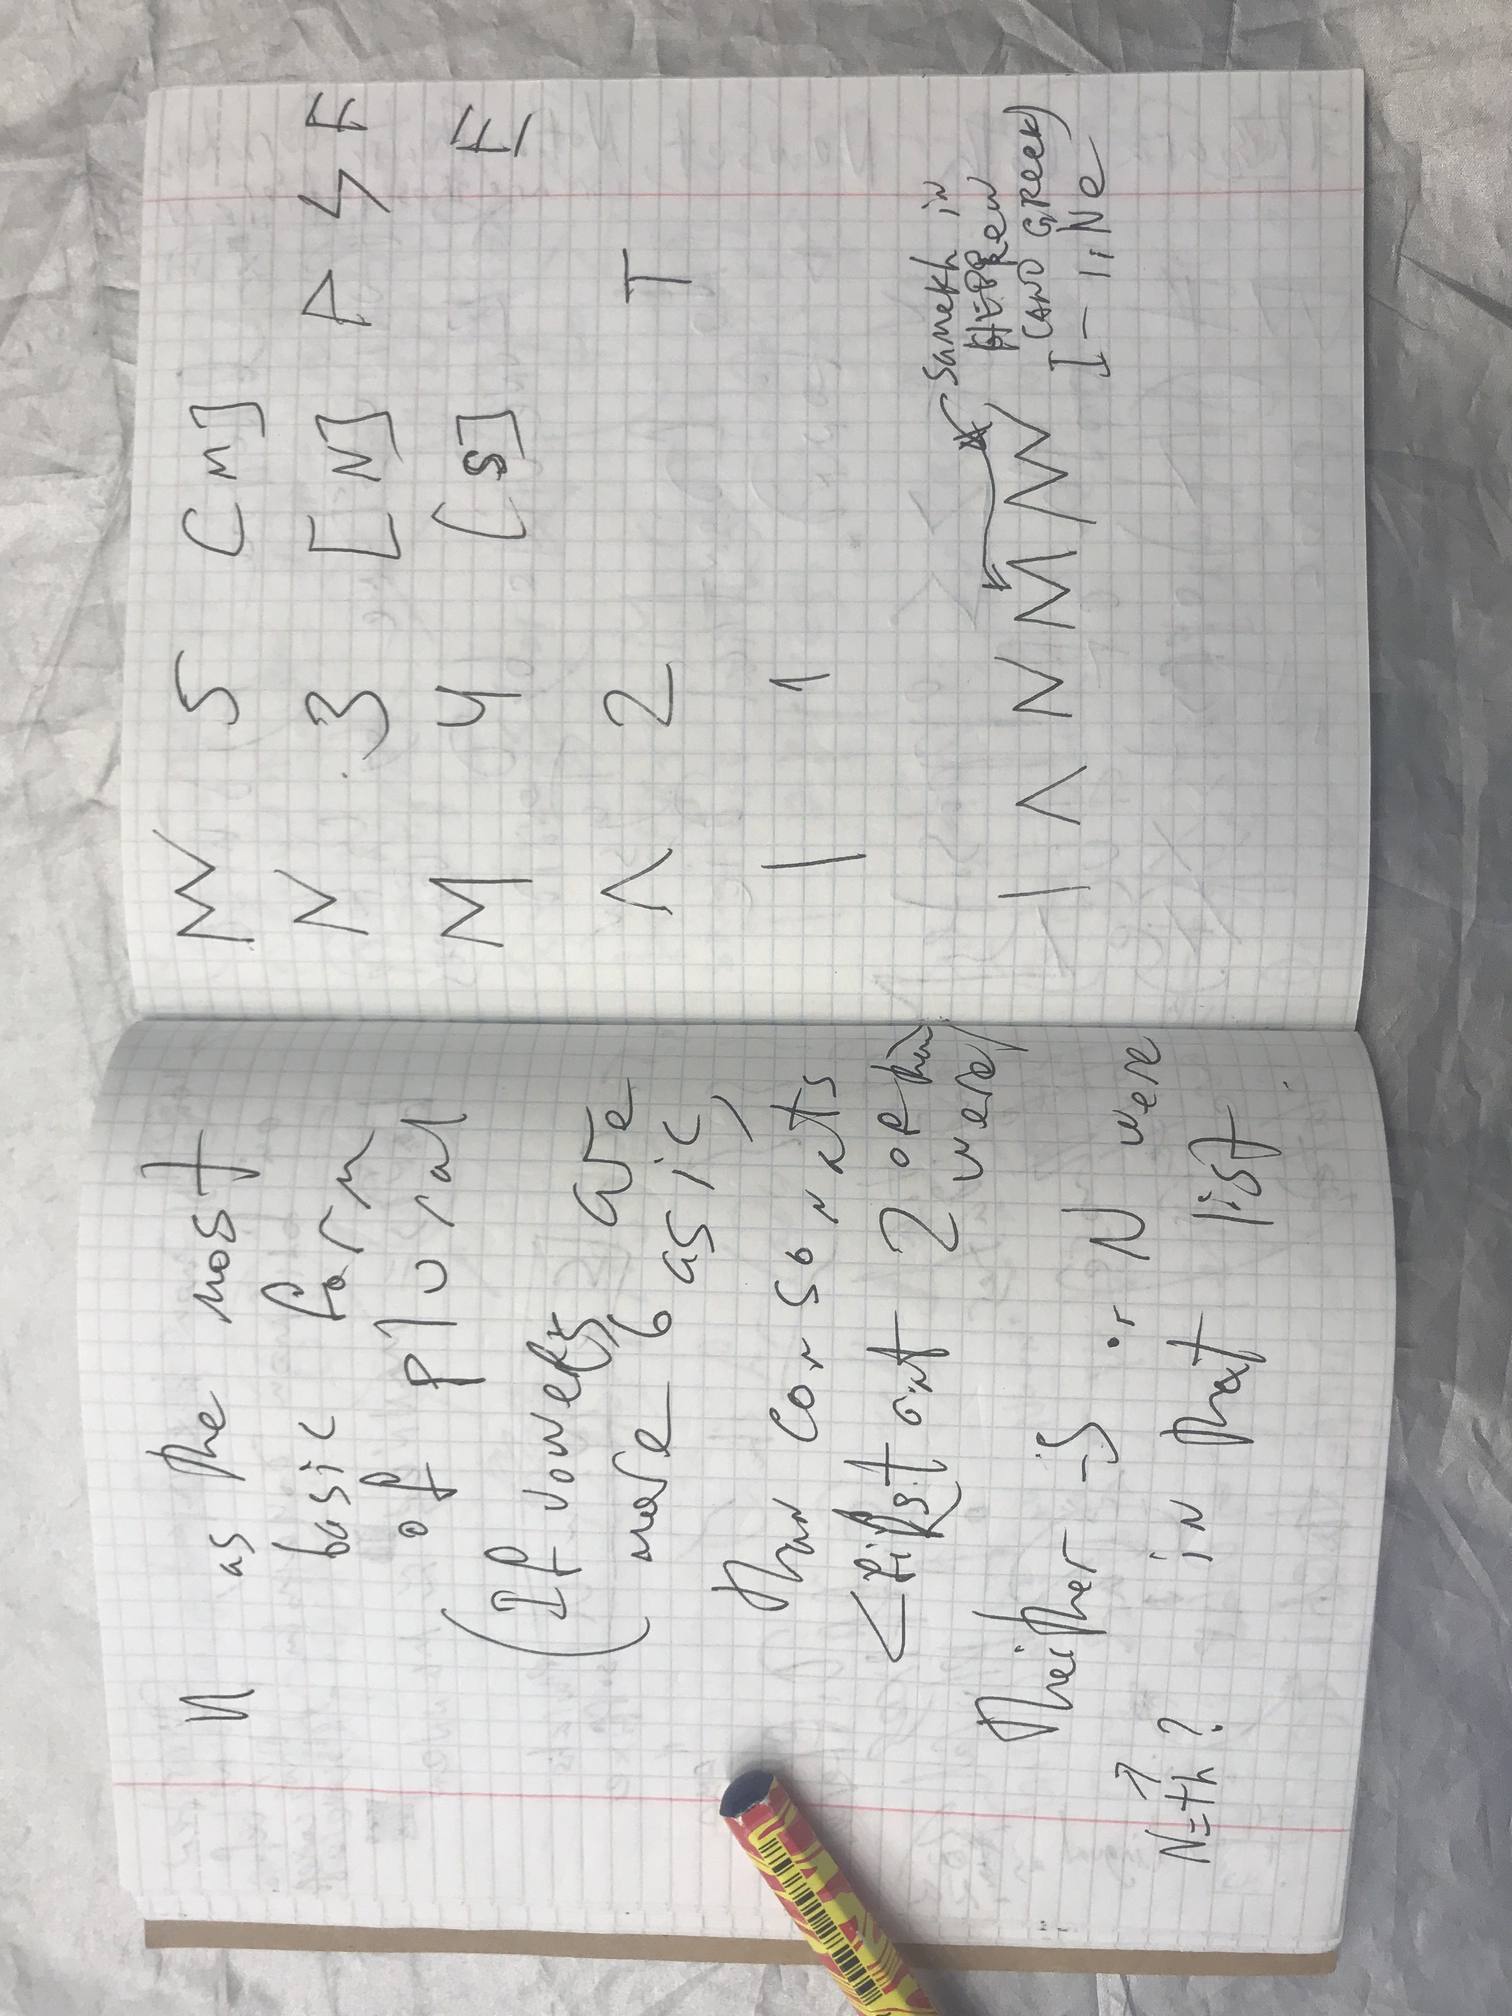 И as the most
basic form
of plural
(If vowels are
more basic,
than consonants
<first ont 2 of them were>
Neither -S or N were
N=th? in that list
W 5 [M]
N 3 [N] A Ϟ F
M 4 [S] E
Λ 2 T
| 1
| Λ N M W
samekh in
HEBREW
(AND GREEK)
I - liNe